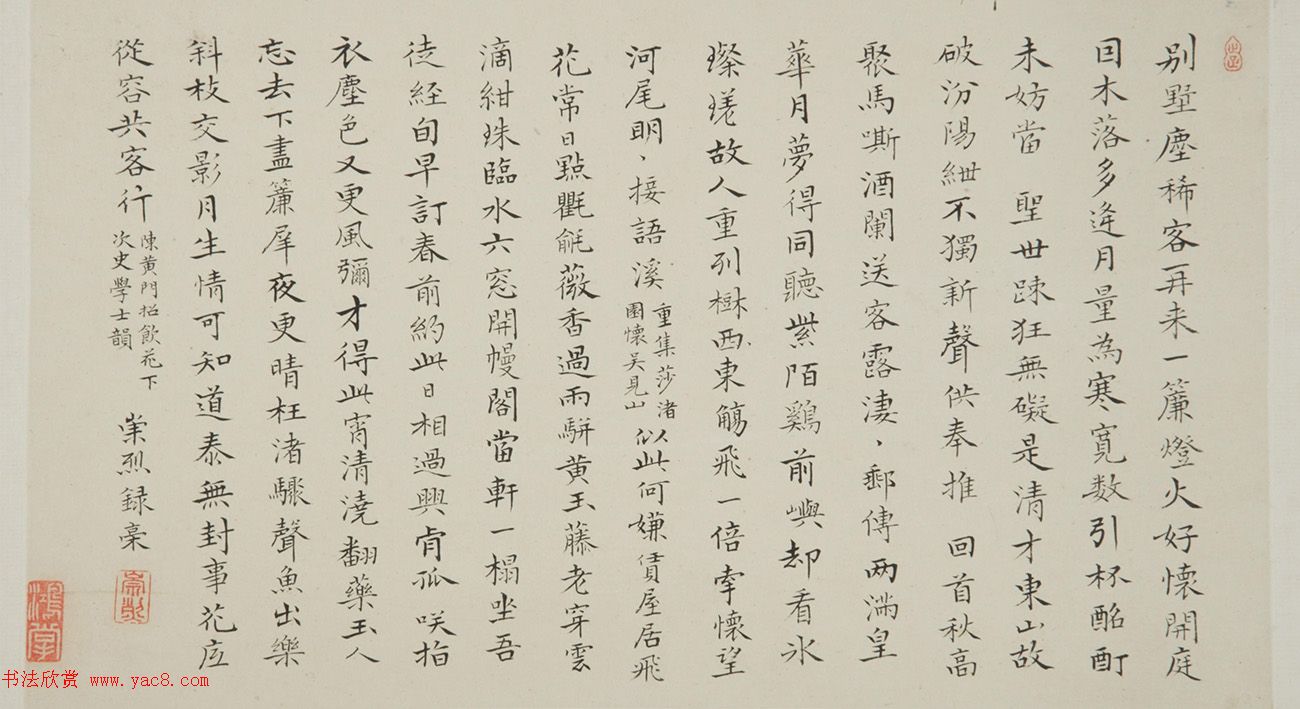 别墅塵稀客再来一簾燈火好懷開庭
因木落多逢月量為寒寬数引杯酩酊
未妨當 聖世踈狂無礙是清才東山故
破汾陽紲不獨新聲供奉推 回首秋高
聚馬嘶酒闌送客露淒〻郵傳两滿皇
華月夢得同聽紫陌鷄前嶼却看氷
璨瑳故人重列樹西東觴飛一倍牽懷望
河尾明〻接語溪 重集莎渚
圃懷吴見山 似此何嫌賃屋居飛
花常日點氍毹薇香過雨駢黄玉藤老穿雲
滴紺珠臨水六窓開幔閣當軒一榻坐吾
徒経旬早訂春前約此日相過興肯孤 咲指
衣塵色又更風彌才得此宵清澆翻藥玉人
忘去下盡簾犀夜更晴枉渚驟聲魚出樂
斜枝交影月生情可知道泰無封事花底
從容共客行 陳黄門招飲花下
次史學士韻 崇烈録稾
崇烈
书法欣赏 www.yac8.com